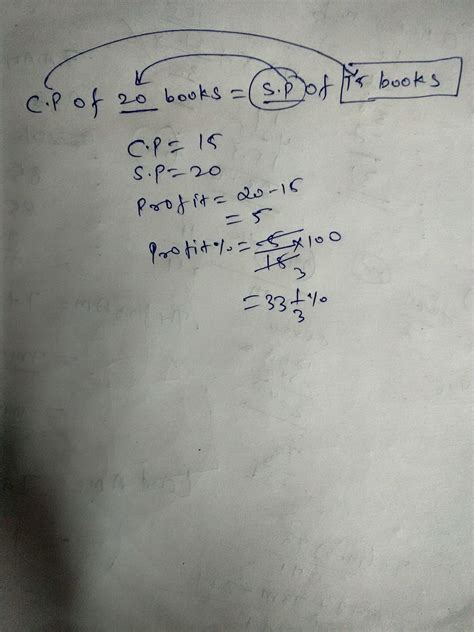 C.P of 20 books = S.P of 15 books
C.P = 15
S.P = 20
Profit = 20-15
= 5
Profit% = 5/15 3 × 100
= 33 1/3 %